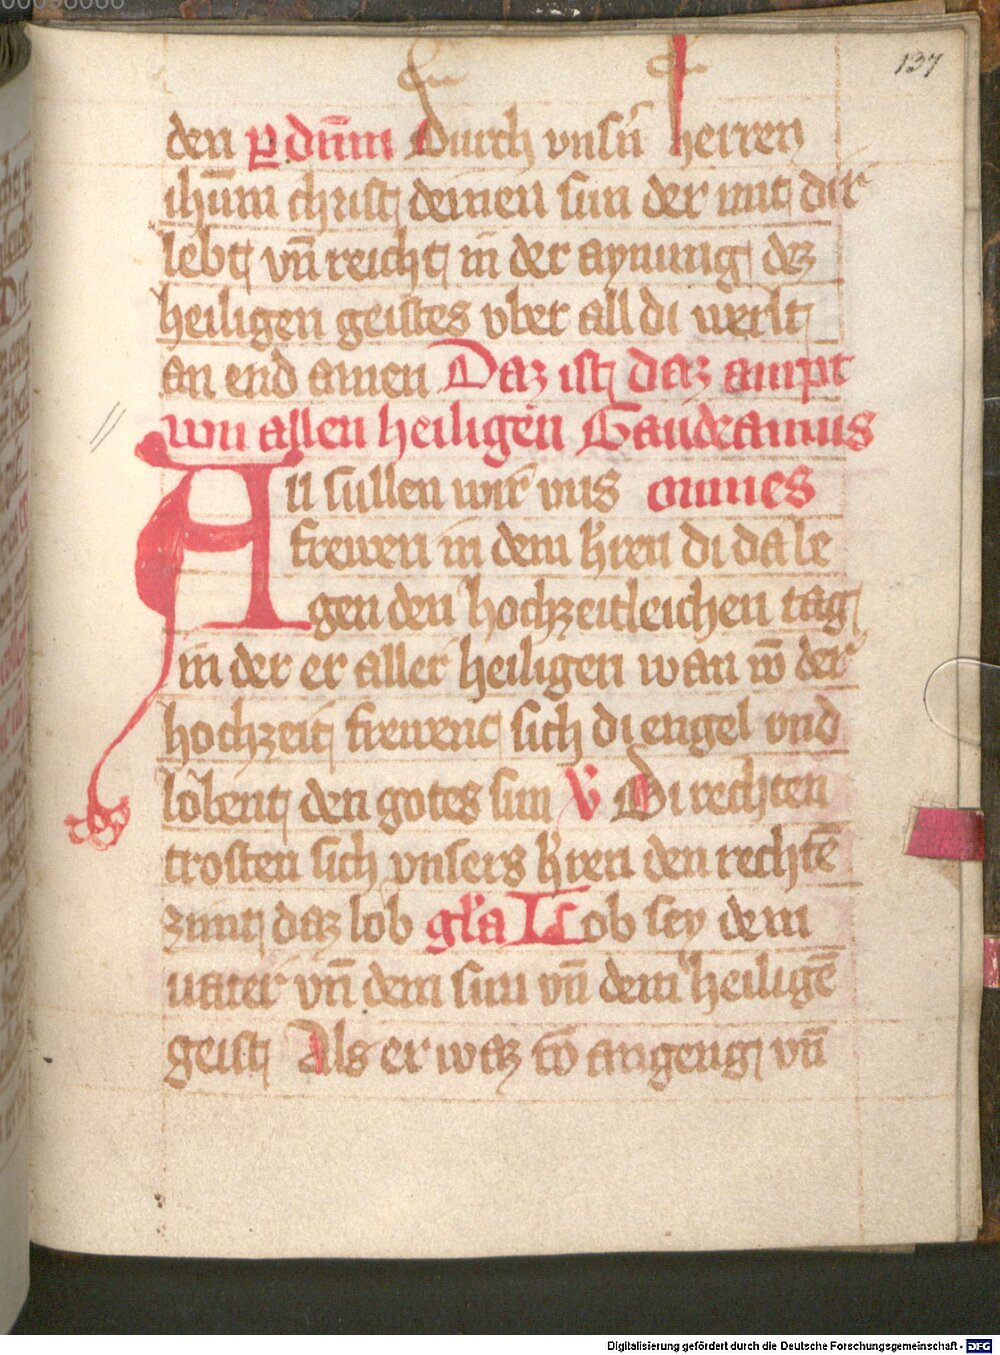 137
den ꝑ dn̄m Durch vnsn̄ herren
ihūm christ deinen sun der mit dir
lebt vn̄ reicht in der aynung dez
heiligen geistes vber all di werlt
an end amen Daz ist daz ampt
von allen heiligen Gaudeamus
All sullen wir vns omnes
frewen in dem hr̄ren di da be
gen den hochzeitleichen tag
in der er aller heiligen wan vo̅ der
hochzeit frewent sich di engel vnd
lobent den gotes sun V̓ Di rechten
trosten sich vnsers hr̄ren den rechtē
zimt daz lob gl̓a Lob sey dem
uater vn̄ dem sun vn̄ dem heiligē
geist Als er waz vo̅ angeng vn̄
Digitalisierung gefördert durch die Deutsche Forschungsgemeinschaft - DFG